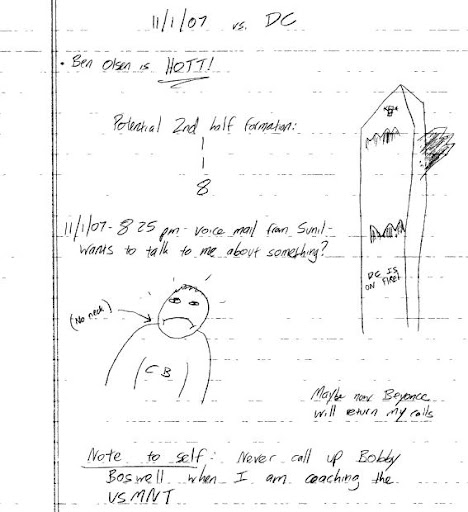 11/1/07 vs. DC
• Ben Olsen is HOTT!
Potential 2nd half formation:
1
1
8
11/1/07 - 8:25 pm - voice mail from Sunil -
wants to talk to me about something?
DC IS
ON FIRE!
(No neck)
CB
Maybe now Beyonce
will return my calls
Note to self: Never call up Bobby
Boswell when I am coaching the
USMNT